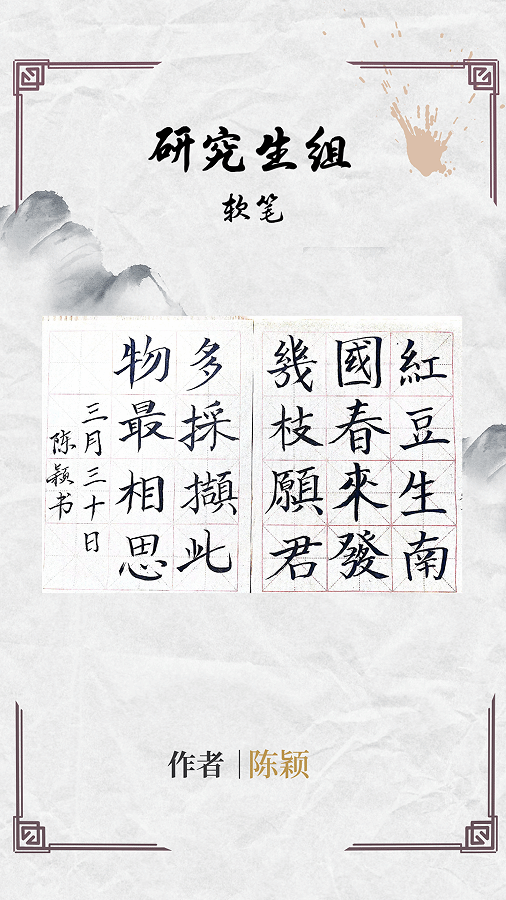 研究生组
软笔
紅豆生南
國春來發
幾枝願君
多採擷此
物最相思
三月三十日
陈颖书
作者 陈颖